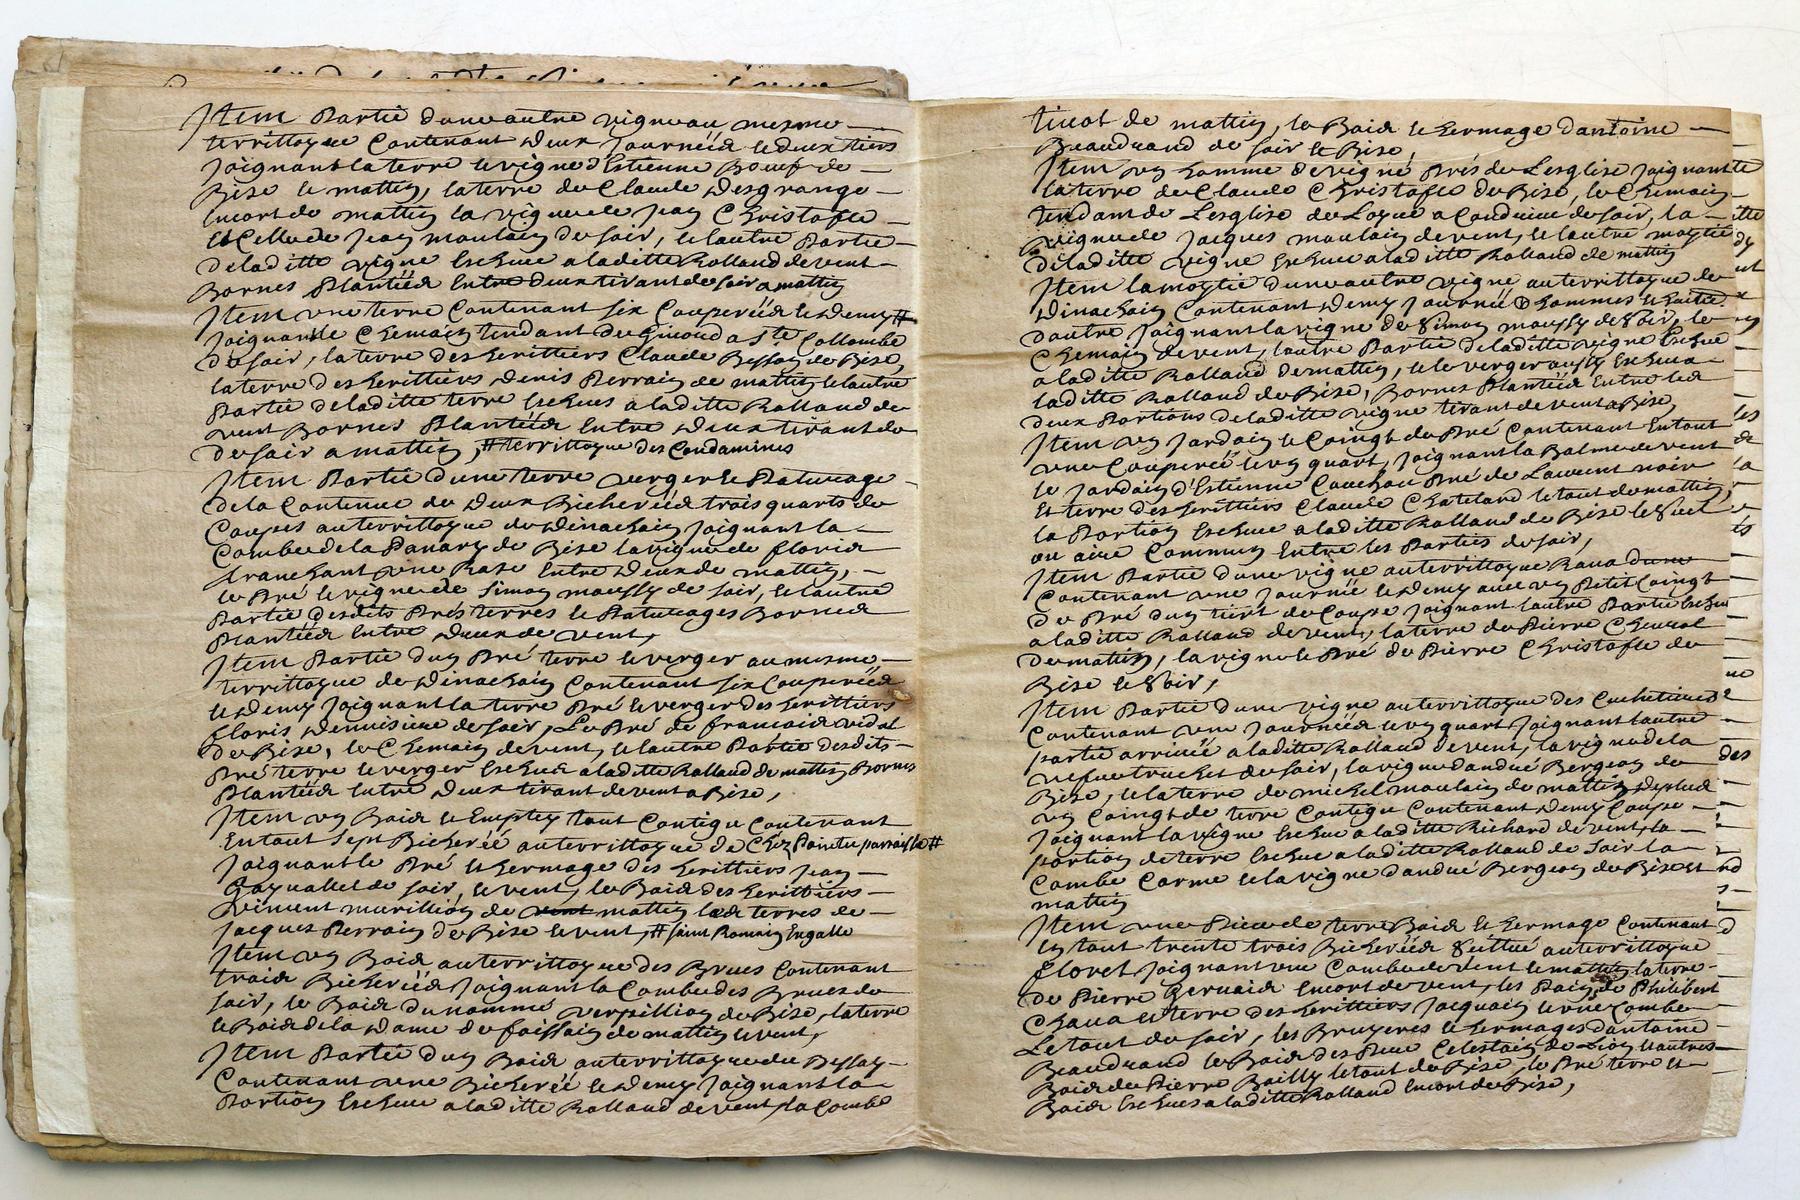 Item Partie dune autre vigne au mesme
territtoyre Contenant deux Journéés le deux tiers
Joignant la terre le vigne d'Estienne Boeuf de
Bise le mattin, la terre de Claude Desgrange
Encort de mattin la vigne de Jean Christofle
et Celle de Jean moulain de soir, le lautre Partie
de laditte vigne Escheue a laditte Rolland de vent
Bornes Plantéés Entre deux tirant de soir a mattin
Item une terre Contenant six Couperéés le demy #
Joignant le Chemain tendant de Ginond a Ste Collombe
de soir, la terre des heritiers Claude Bessay de Bise,
la terre des heritiers Denis Perrain de mattin le lautre
Partie de laditte terre Escheue a laditte Rolland de
vent Bornes Plantéés Entre deux tirant de
de soir a mattin, # territtoyre des Condamines
Item Partie dune terre verger le Paturage
de la Contenue de deux Bicheréés trois quarts de
Coupes au territtoyre de Dinachain Joignant la
Combe de la Panary de Bise la vigne de floris
tranchant une Rase Entre deux de mattin,
le Pré le vigne de Simon moussy de soir, le lautre
Partie desdits Prés terres le Paturages Bornes
Plantéés Entre deux de vent,
Item Partie dun Pré terre le verger au mesme
territtoyre de Dinachain Contenant six Couperéés
le demy Joignant la terre Pré le verger des heritiers
floris de soir, Le Pré de francois vidal
de Bise, le Chemain de vent, le lautre Partie desdits
Pré terre le verger Escheue a laditte Rolland de mattin Bornes
Plantéés Entre deux tirant de vent a Bise,
Item un Bois le Empley tout Contigu Contenant
En tout sept Bicheréé au territtoyre de Chez Pointu parroisse #
Joignant le Pré le hermage des heritiers Jean
Gaynallet de soir, le vent, le Bois des heritiers
vincent murillion de vent mattin les terres de
Jacques Perrain de Bise le vent, # saint Romain En galle
Item un Bois au territtoyre des Brues Contenant
trois Bicheréés Joignant la Combe des Brues de
soir, le Bois du nommé verpillion de Bise, la terre
le Bois de la Dame de foissain de mattin le vent,
Item Partie dun Bois au territtoyre du Bessay
Contenant une Bicheréé le demy Joignant la
Portion Escheue a laditte Rolland de vent, la Combe
tirant de mattin, le Bois le hermage dantoine
Beaudrand de soir le Bise,
Item un homme de vigne Prés de Lesglise Joignant
la terre de Claude Christofle de Bise, le Chemain
tendant de Lesglise de Loyre a Condrieu de soir, la
vigne de Jacques moulain de vent, le lautre moytié
de laditte vigne Escheue a laditte Rolland de mattin
Item la moytié dune autre vigne au territtoyre de
Dinachain Contenant demy Journéé hommes
dautre Joignant la vigne de Simon moussy de Soir, le
Chemain de vent, lautre Partie de laditte vigne Escheue
a laditte Rolland de mattin, le le verger aussy Escheu a
laditte Rolland de Bise, Bornes Plantéés Entre les
deux Portions de laditte vigne tirant de vent a Bise
Item un Jardain le Coingt de Pré Contenant En tout
une Couperéé le un quart, Joignant la Balme de vent
le Jardain d'Estienne Pré de Laurent noir
Et terre des heritiers Claude Chatelard le tout de mattin,
la Portion Escheue a laditte Rolland de Bise le
ou aire Commun Entre les Parties de soir,
Item Partie dune vigne au territtoyre
Contenant une Journéé le demy avec un Petit Coingt
de Pré dun tiert de Coupe Joignant lautre Partie Escheue
a laditte Rolland de vent, la terre de Pierre Cheneval
de mattin, la vigne le Pré de Pierre Christofle de
Bise le Soir,
Item Partie dune vigne au territtoyre des
Contenant une Journéés le un quart Joignant lautre
partie arrivéé a laditte Rolland de vent, la vigne de la
vefue truchet de soir, la vigne dandué Bergeon de
Bise, le la terre de michel moulain de mattin, deplus
un Coingt de terre Contigu Contenant demy Coupe
Joignant la vigne Escheue a laditte Richard de vent, la
portion de terre Escheue a laditte Rolland de Soir la
Combe Carme le la vigne dandué Bergeon de Bise et
mattin
Item une Piece de terre Bois le hermage Contenant
En tout trente trois Bicheréés Scittué au territtoyre
floret Joignant une Combe de vent le mattin, la terre
de Pierre Gervais Encort de vent, les Bois de Philibert
Chava Et terre des heritiers Jacquain le une Combe
Le tout de soir, les Bruyeres le hermages dantoine
Beaudrand le Bois des Peres Celestain de Lion le autres
Bois de Pierre Bailly le tout de Bise, le Pré terre et
Bois Escheus a laditte Rolland Encort de Bise,